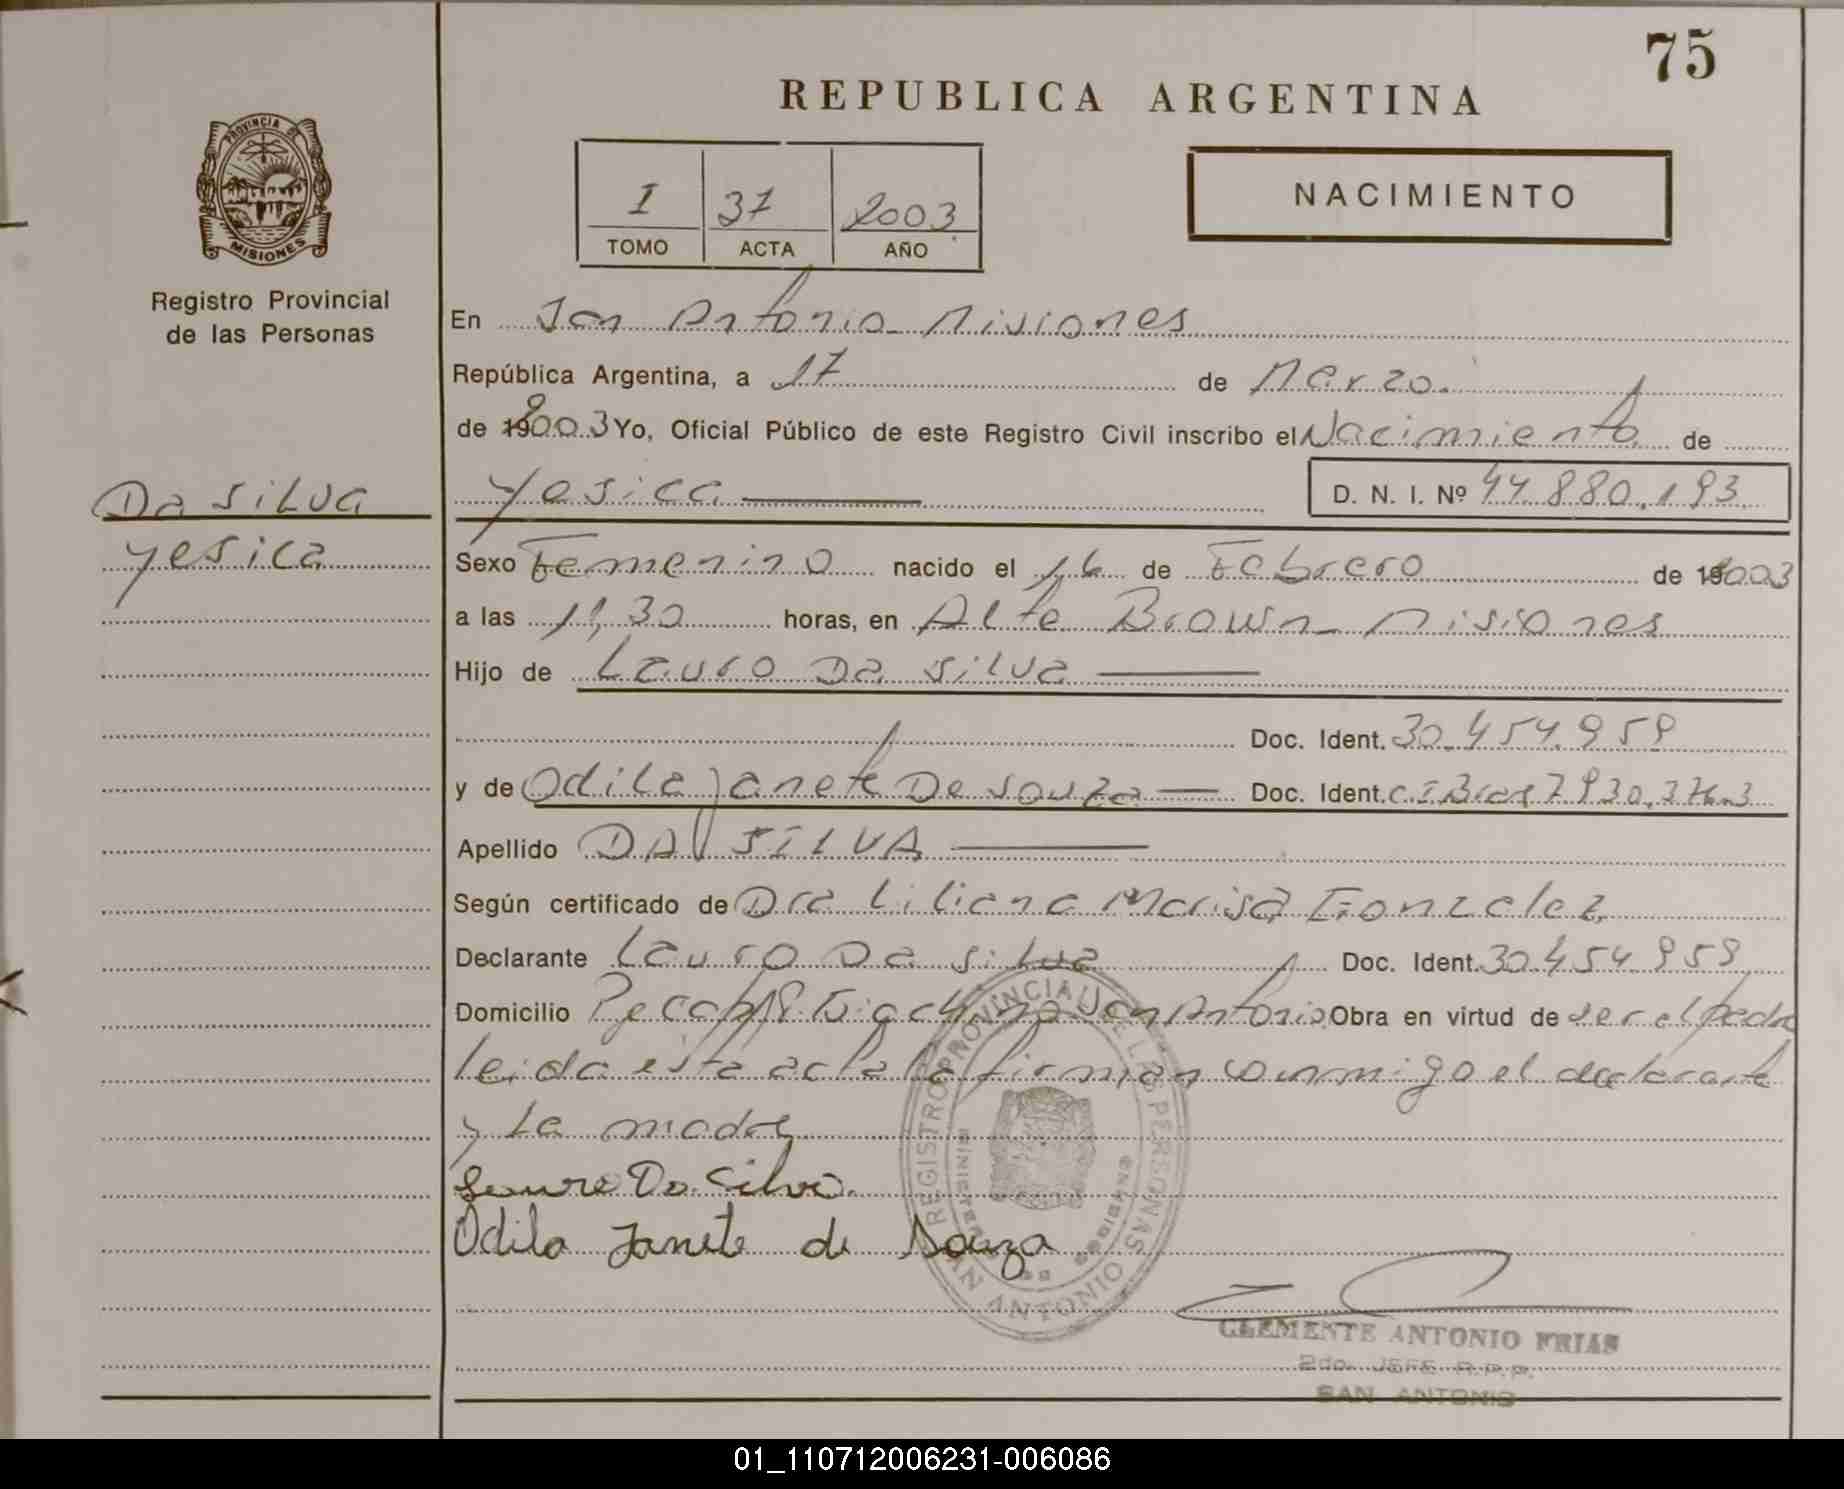 75
REPUBLICA ARGENTINA
PROVINCIA DE
MISIONES
Registro Provincial
de las Personas
I 37 2003
TOMO ACTA AÑO
NACIMIENTO
En San Antonio Misiones
República Argentina, a 17 de Marzo.
de 2003 Yo, Oficial Público de este Registro Civil inscribo el Nacimiento de
Da SiLva
Yesica
Yesica D. N. I. Nº 44.880.193
Sexo Femenino nacido el 16 de Febrero de 2003
a las 11,30 horas, en Alte Brown Misiones
Hijo de Lauro Da Silva
Doc. Ident. 30.454.959
y de Odila Janete De Souza Doc. Ident. C.I Bras 7.930.376.3
Apellido DA SILVA
Según certificado de Dra Liliana Marisa Gonzalez
Declarante Lauro Da Silva Doc. Ident. 30.454.959
Domicilio San Antonio Obra en virtud de ser el padre
leida esta acta la firman conmigo el declarante
y La madre
Lauro Da Silva.
Odila Janete de Souza
REGISTRO PROVINCIAL DE LAS PERSONAS
SAN ANTONIO
CLEMENTE ANTONIO FRIAS
2do. JEFE R.P.P.
SAN ANTONIO
01_110712006231-006086